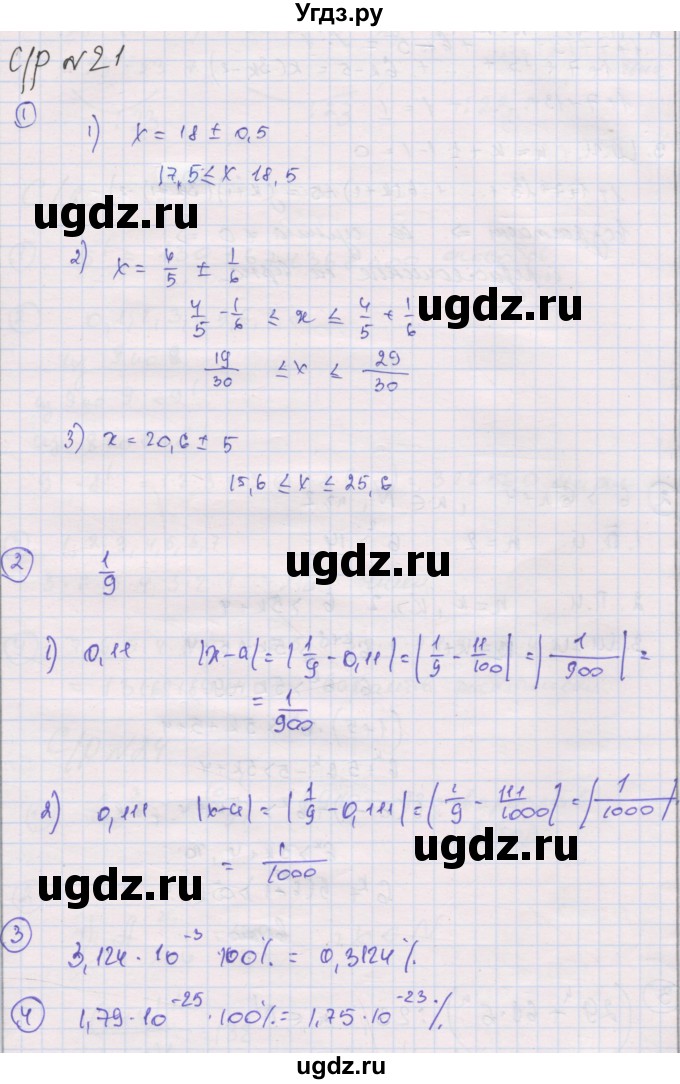 Угдз.ру
С/р №21
1
1) x = 18 ± 0,5
17,5 ≤ x 18,5
ugdz.ru
2) x = 4/5 ± 1/6
4/5 - 1/6 ≤ x ≤ 4/5 + 1/6
ugdz.ru
19/30 ≤ x ≤ 29/30
3) x = 20,6 ± 5
15,6 ≤ x ≤ 25,6
ugdz.ru
2 1/9
ugdz.ru
1) 0,11 |x-a| = |1/9 - 0,11| = |1/9 - 11/100| = |1/900| =
= 1/900
ugdz.ru
2) 0,111 |x-a| = |1/9 - 0,111| = |1/9 - 111/1000| = |1/1000|
= 1/1000
ugdz.ru
ugdz.ru
3 3,124 · 10^-3 · 100% = 0,3124%
4 1,79 · 10^-25 · 100% = 1,75 · 10^-23 %
ugdz.ru